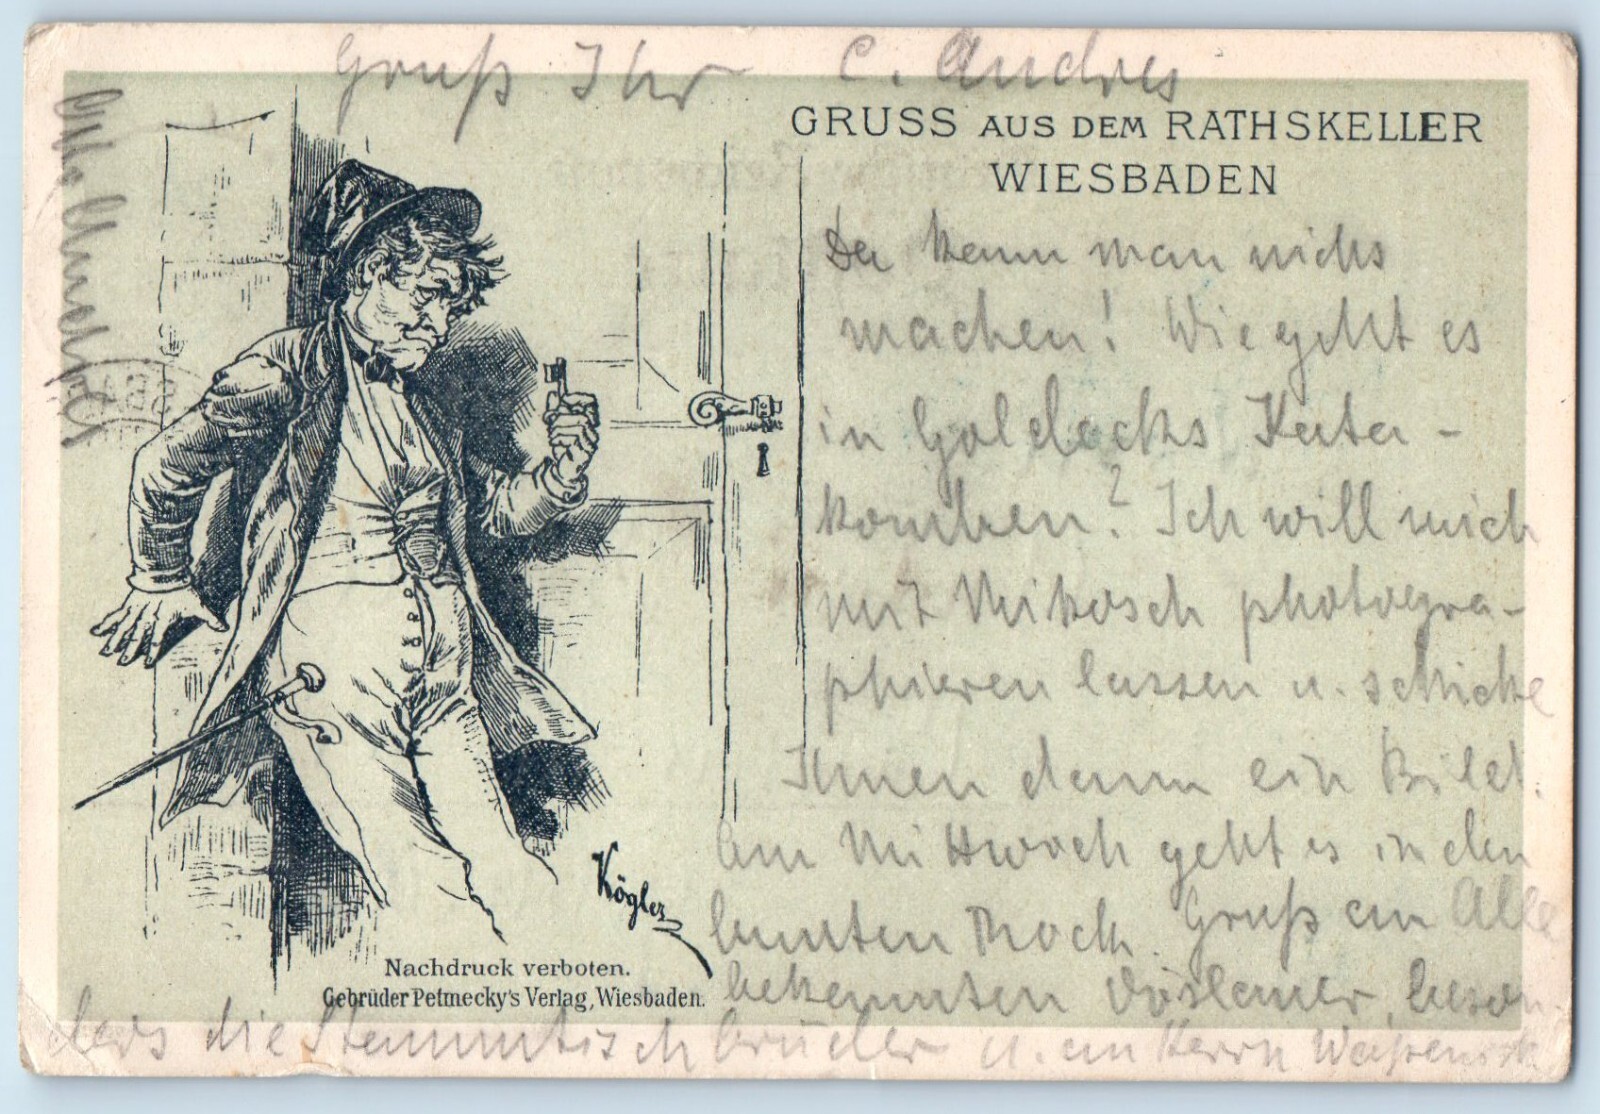 Gruß Ihr C. Andres
GRUSS AUS DEM RATHSKELLER
WIESBADEN
Da kann man nichs
machen! Wie geht es
in Goldecks Kata-
komben? Ich will mich
mit Mikosch photogra-
phieren lassen u. schicke
Ihnen dann ein Bild.
Am Mittwoch geht es in den
bunten Rock. Gruß an Alle
bekannten Vöslauer, beson-
ders die Stammtischbrüder u. an Herrn
Kögler
Nachdruck verboten.
Gebrüder Petmecky's Verlag, Wiesbaden.